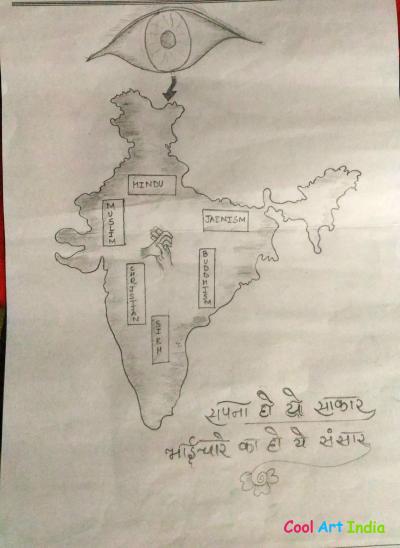 HINDU
MUSLIM
JAINISM
BUDDHISM
CHRISTIAN
SIKH
सपना हो ये साकार
भाईचारे का हो ये संसार
Cool Art India